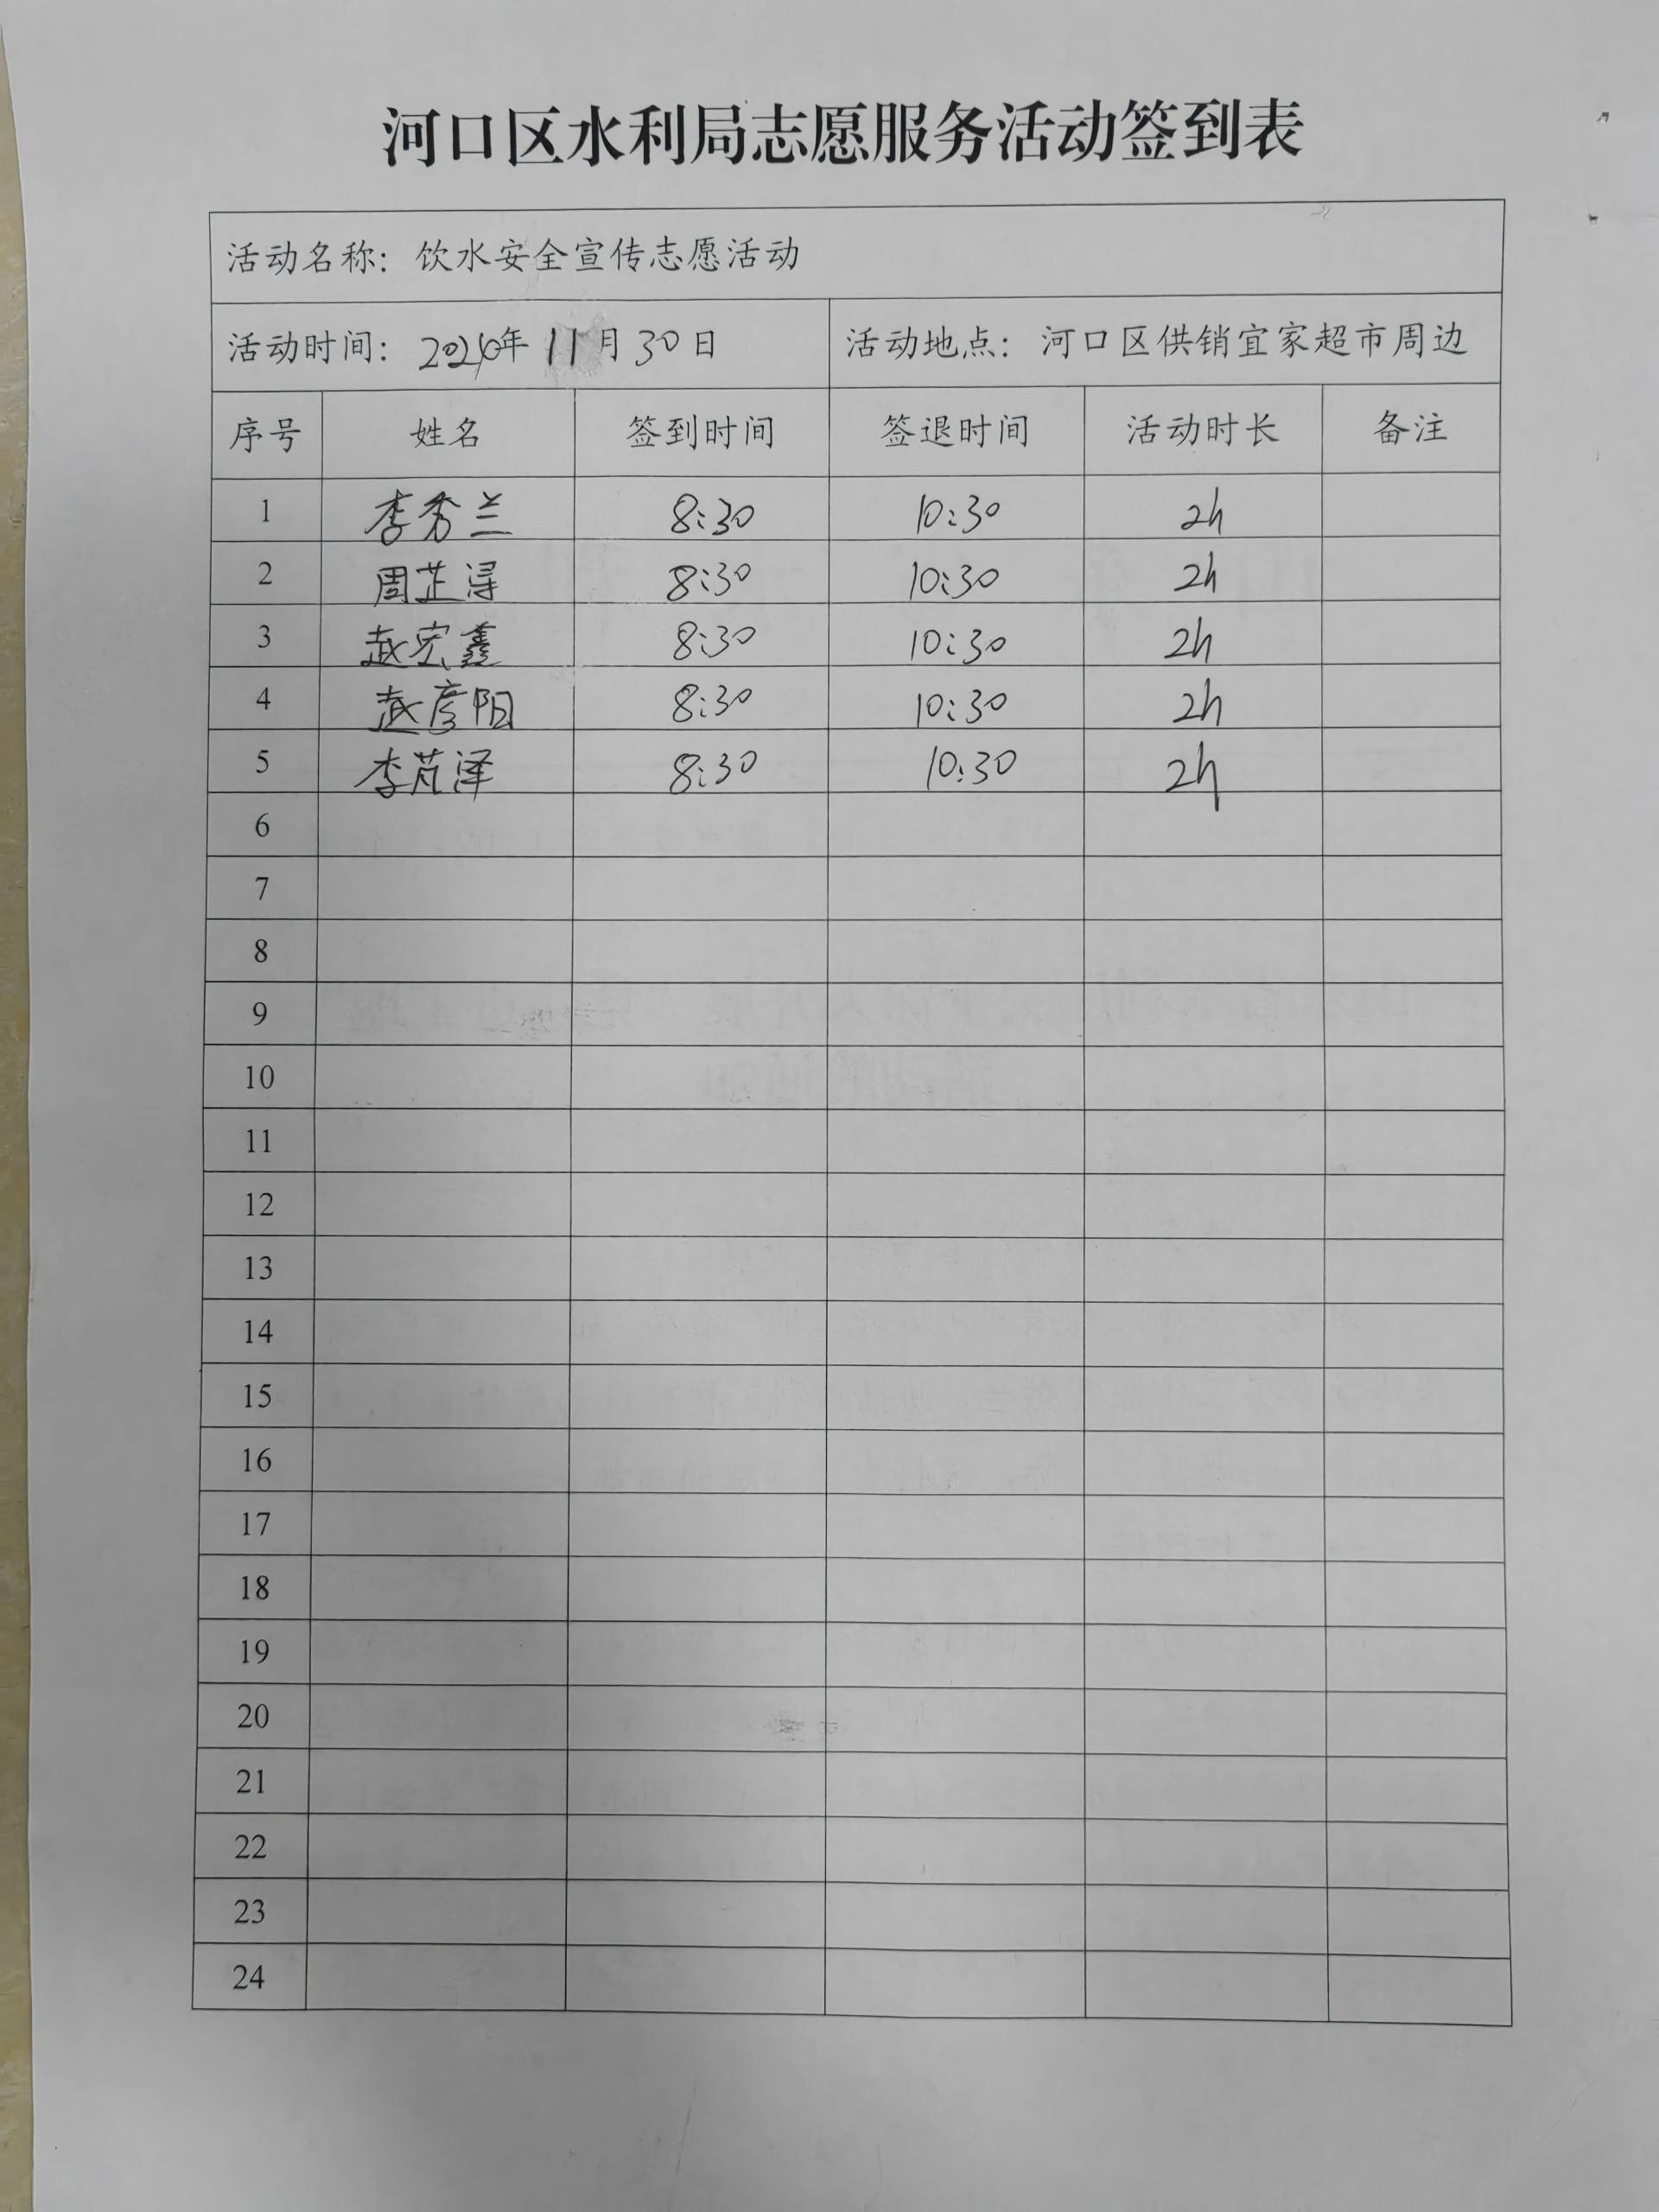 河口区水利局志愿服务活动签到表
活动名称：饮水安全宣传志愿活动
活动时间：2024年11月30日 活动地点：河口区供销宜家超市周边
序号 姓名 签到时间 签退时间 活动时长 备注
1 李秀兰 8:30 10:30 2h
2 周芷浔 8:30 10:30 2h
3 赵宏鑫 8:30 10:30 2h
4 赵彦阳 8:30 10:30 2h
5 李芃泽 8:30 10:30 2h
6
7
8
9
10
11
12
13
14
15
16
17
18
19
20
21
22
23
24